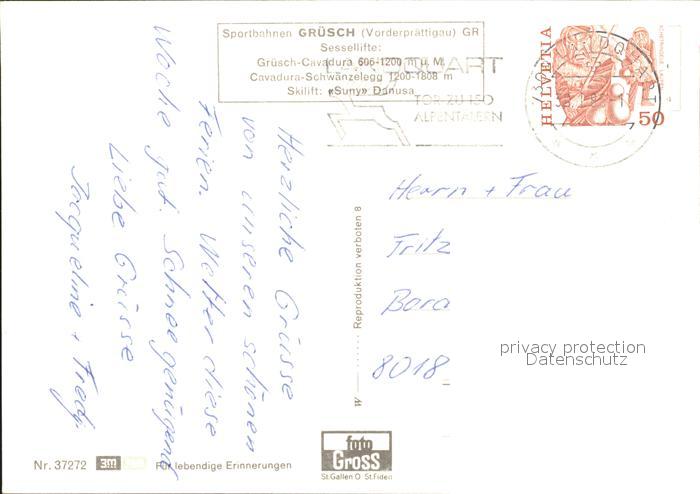 Sportbahnen GRÜSCH (Vorderprättigau) GR
Sessellifte:
Grüsch-Cavadura 606-1200 m u. M.
Cavadura-Schwänzelegg 1200-1808 m
Skilift: «Suny» Danusa
LANDQUART
TOR ZU 150
ALPENTÄLERN
HELVETIA
50
Herzliche Grüsse
von unseren schönen
Ferien. Wetter diese
Woche gut. Schnee genügend
Liebe Grüsse
Jacqueline + Fredy
Herrn + Frau
Fritz
Bara
8018
privacy protection
Datenschutz
W
Reproduktion verboten 8
Nr. 37272
3m
Für lebendige Erinnerungen
foto
Gross
St.Gallen O St.Fiden